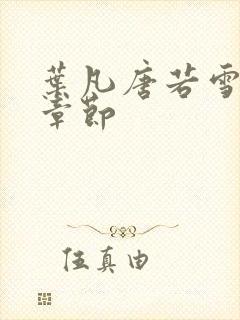 葉凡唐若雪
章節
伍真由